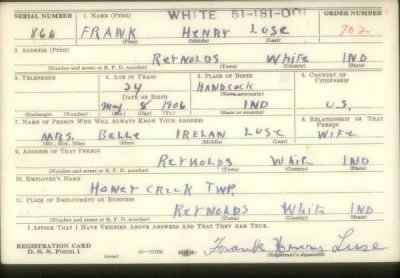 WHITE 51-181-001
SERIAL NUMBER 1. NAME (Print) ORDER NUMBER
866 FRANK HENRY LUSE 702
(First) (Middle) (Last)
2. ADDRESS (Print)
REYNOLDS White IND
(Number and street or R. F. D. number) (Town) (County) (State)
3. TELEPHONE 4. AGE IN YEARS 5. PLACE OF BIRTH 6. COUNTRY OF CITIZENSHIP
34 HANDCOCK
DATE OF BIRTH (Town or county)
May 8 1906 IND U.S.
(Exchange) (Number) (Mo.) (Day) (Yr.) (State or country)
7. NAME OF PERSON WHO WILL ALWAYS KNOW YOUR ADDRESS 8. RELATIONSHIP OF THAT PERSON
MRS. BELLE IRELAN LUSE WIFE
(Mr., Mrs., Miss) (First) (Middle) (Last)
9. ADDRESS OF THAT PERSON
REYNOLDS White IND
(Number and street or R. F. D. number) (Town) (County) (State)
10. EMPLOYER'S NAME
HONEY CREEK TWP.
11. PLACE OF EMPLOYMENT OR BUSINESS
REYNOLDS White IND
(Number and street or R. F. D. number) (Town) (County) (State)
I AFFIRM THAT I HAVE VERIFIED ABOVE ANSWERS AND THAT THEY ARE TRUE.
REGISTRATION CARD
D. S. S. Form 1 (over) Frank Henry Luse
(Registrant's signature)